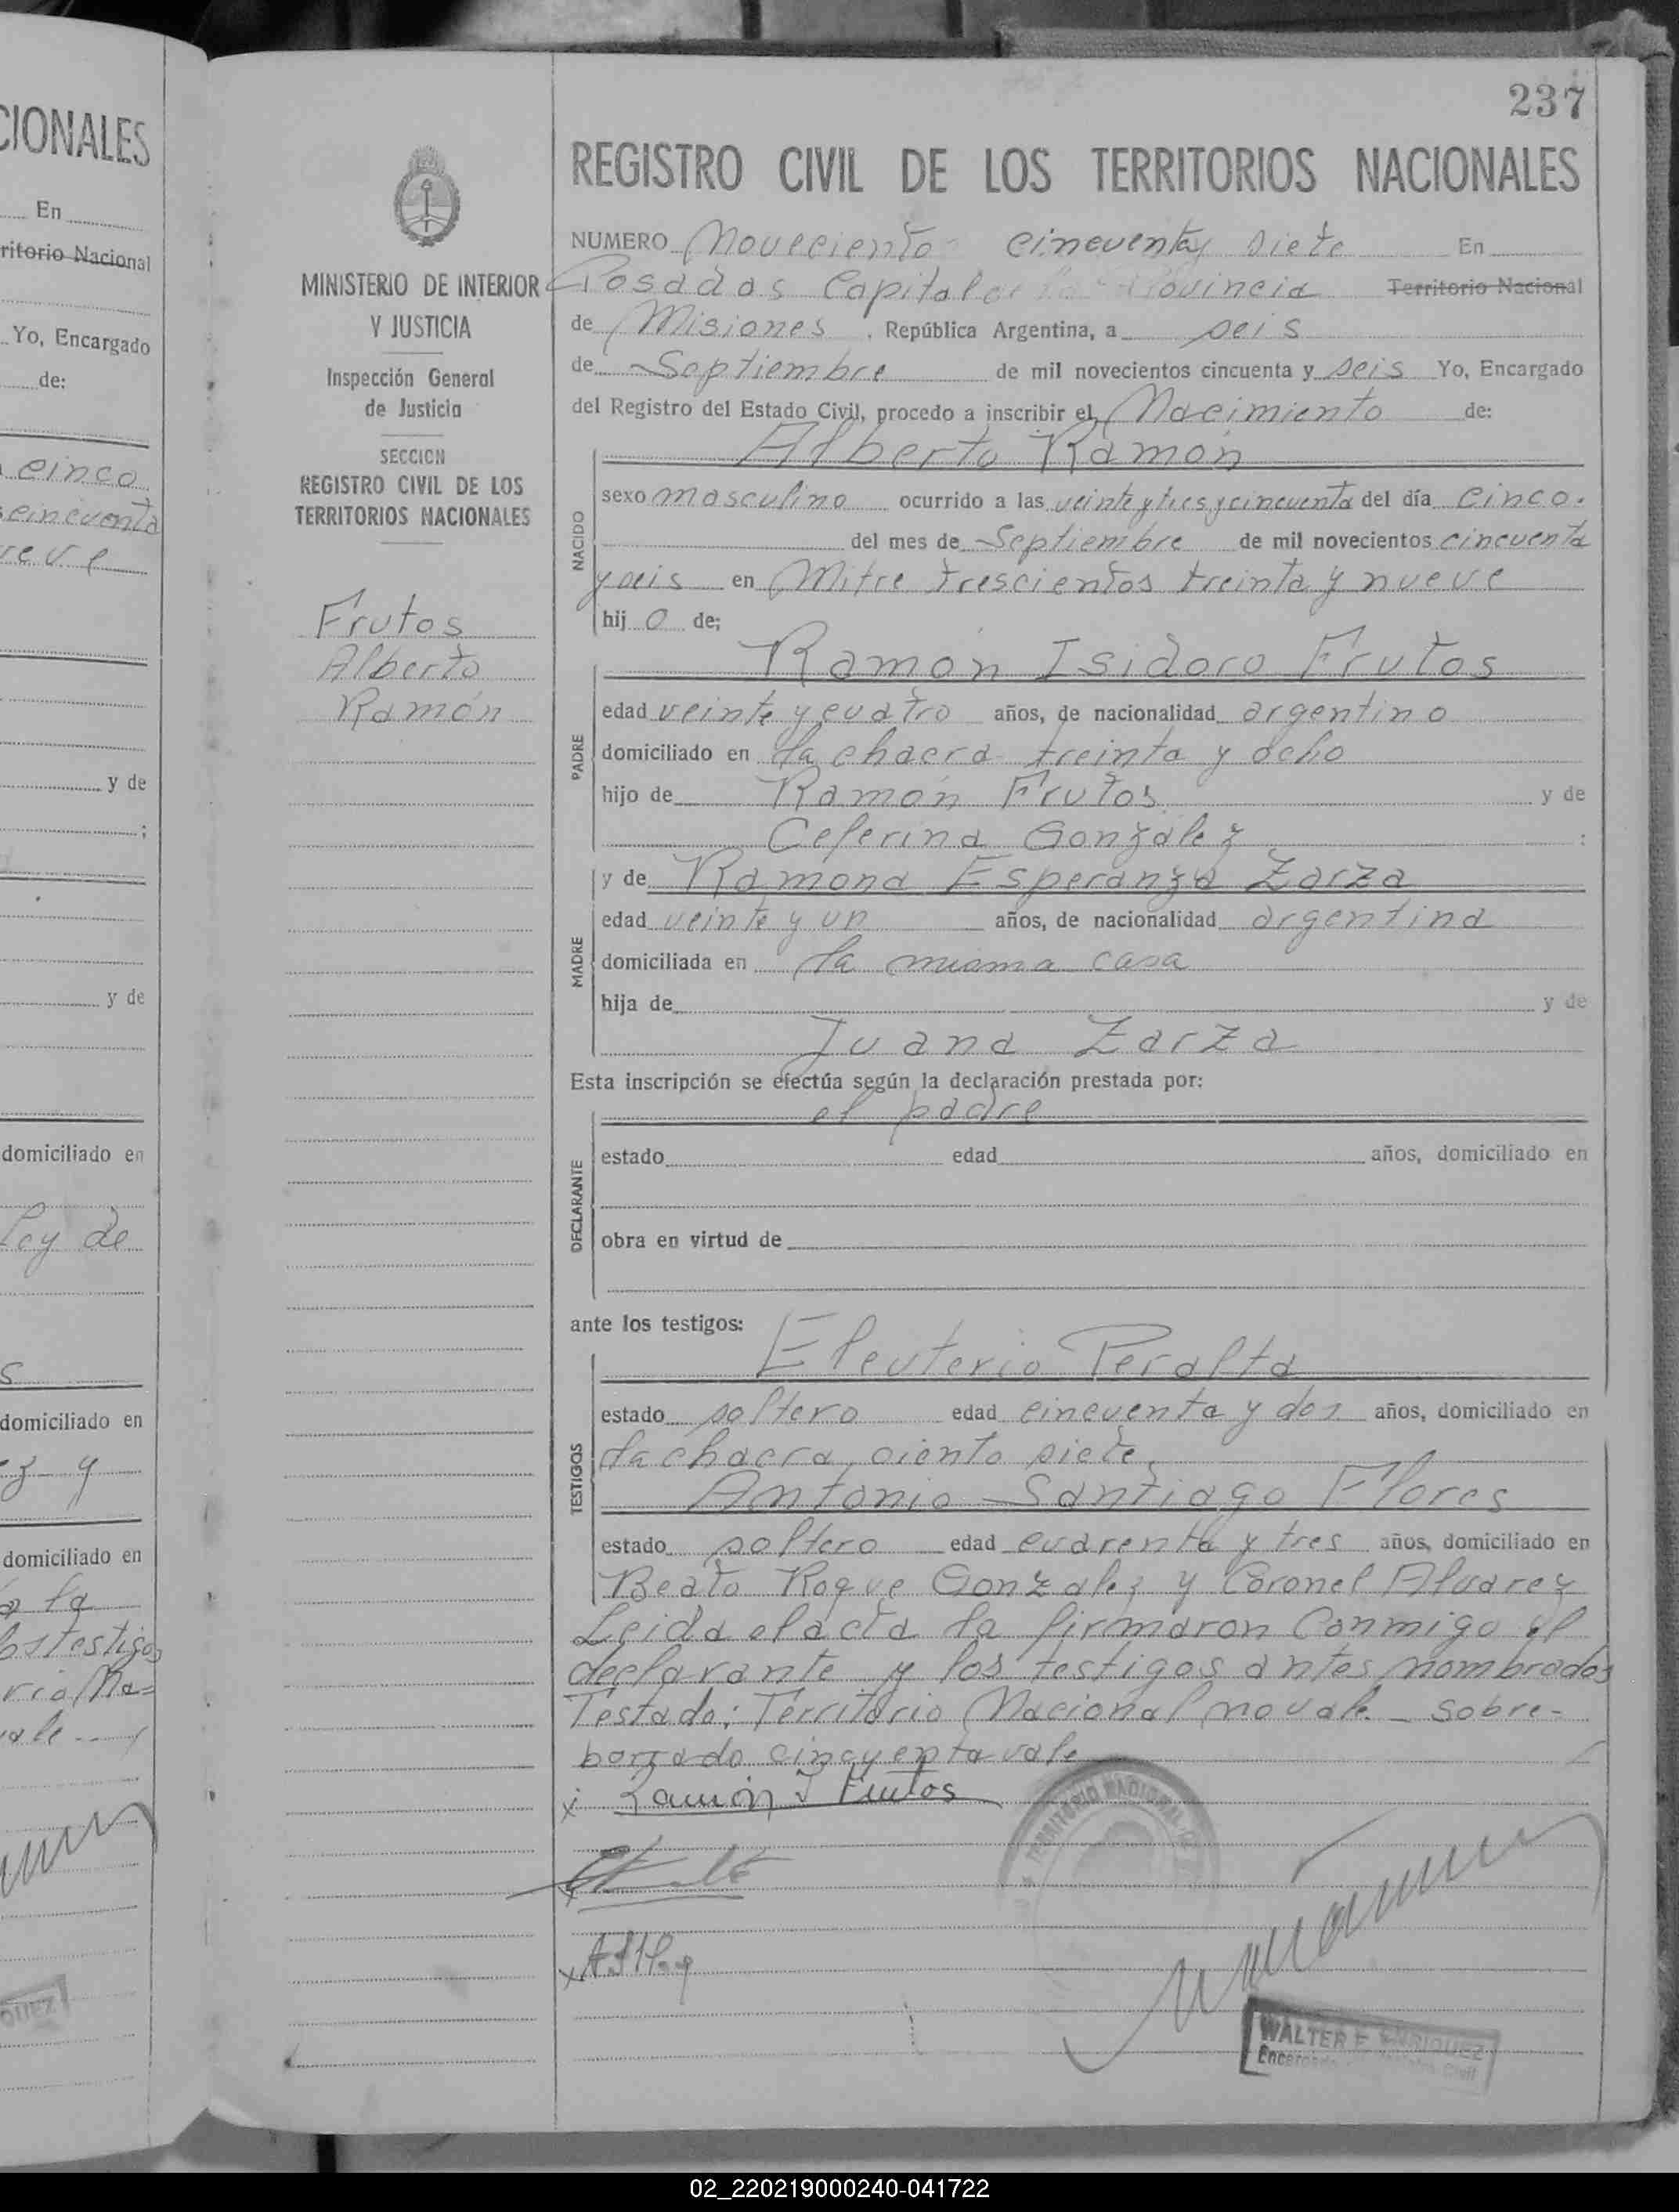 CIONALES
En
ritorio Nacional
Yo, Encargado
de:
cinco
cincuenta
y de
y de
domiciliado en
Ley de
s
domiciliado en
z y
domiciliado en
a la
los testigos
vale
237
MINISTERIO DE INTERIOR
Y JUSTICIA
Inspección General
de Justicia
SECCION
REGISTRO CIVIL DE LOS
TERRITORIOS NACIONALES
Frutos
Alberto
Ramón
REGISTRO CIVIL DE LOS TERRITORIOS NACIONALES
NUMERO Noveciento cincuenta y siete En
Posadas Capital de la Provincia Territorio Nacional
de Misiones, República Argentina, a seis
de Septiembre de mil novecientos cincuenta y seis Yo, Encargado
del Registro del Estado Civil, procedo a inscribir el Nacimiento de:
Alberto Ramón
NACIDO
sexo masculino ocurrido a las veinte y tres y cincuenta del día cinco.
del mes de Septiembre de mil novecientos cincuenta
y seis en Mitre trescientos treinta y nueve
hij o de:
Ramón Isidoro Frutos
PADRE
edad veinte y cuatro años, de nacionalidad argentino
domiciliado en la chacra treinta y ocho
hijo de Ramón Frutos y de
Ceferina González ;
y de Ramona Esperanza Zarza
MADRE
edad veinte y un años, de nacionalidad argentina
domiciliada en la misma casa
hija de y de
Juana Zarza
Esta inscripción se efectúa según la declaración prestada por:
el padre
DECLARANTE
estado edad años, domiciliado en
obra en virtud de
ante los testigos:
Eleuterio Peralta
TESTIGOS
estado soltero edad cincuenta y dos años, domiciliado en
la chacra ciento siete,
Antonio Santiago Flores
estado soltero edad cuarenta y tres años, domiciliado en
Beato Roque Gonzalez y Coronel Alvarez
Leida el acta la firmaron conmigo el
declarante y los testigos antes nombrados
Testado: Territorio Nacional no vale - sobre-
borrado cincuenta vale
x Ramón I Frutos
TERRITORIO NACIONAL
WALTER F. ENRIQUEZ
Encargado Civil
02_220219000240-041722